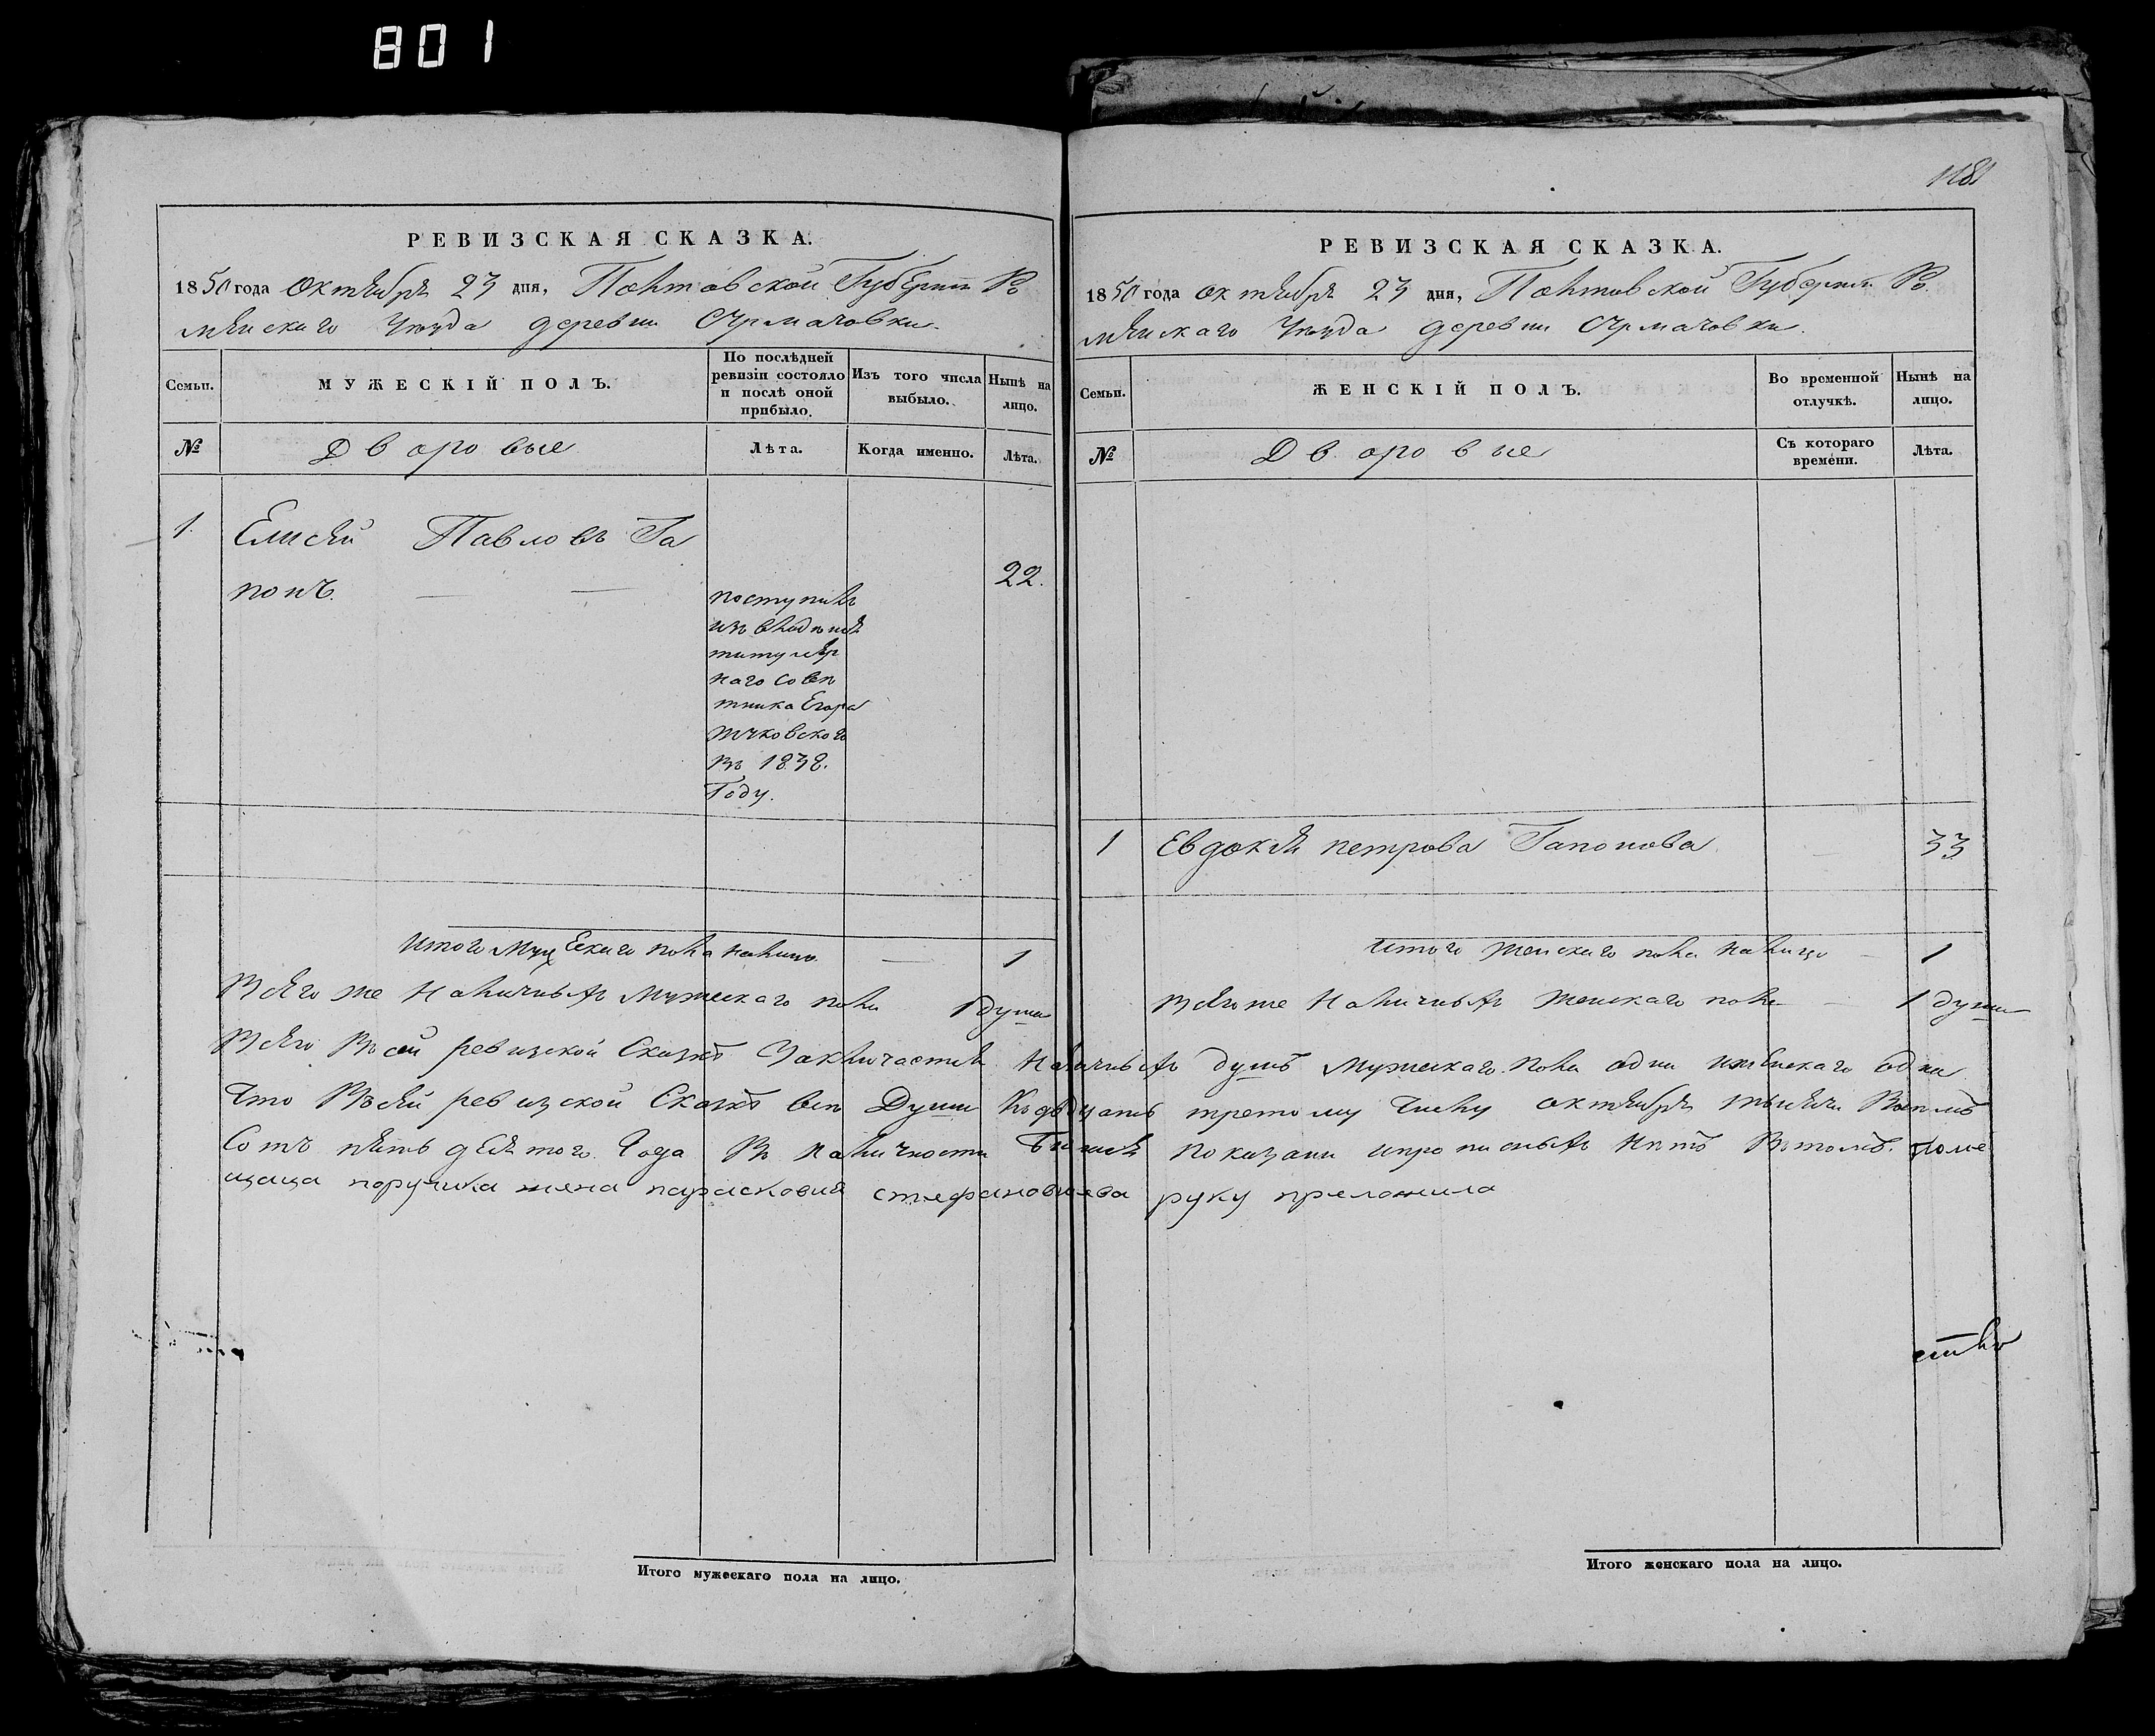 801
1181
РЕВИЗСКАЯ СКАЗКА.
1850 года Октября 23 дня, Полтавской Губернiи Ро
менскаго Уезда деревни
Семьи.
МУЖЕСКІЙ ПОЛЪ.
По послѣдней ревизіи состояло и послѣ оной прибыло.
Изъ того числа выбыло.
Нынѣ на лицо.
№
Дворовые
Лѣта.
Когда именно.
Лѣта.
1.
Елисей Павловъ Га
понъ.
22.
поступилъ
изъ владения
титуляр
наго Совѣ
тника Егора
въ 1838.
Году.
Итого Мужескаго пола налицо. 1
Всего же Наличныхъ Мужескаго пола 1 душа
РЕВИЗСКАЯ СКАЗКА.
1850 года октября 23 дня, Полтавской Губернiи Ро
менскаго Уезда деревни
Семьи.
ЖЕНСКІЙ ПОЛЪ.
Во временной отлучкѣ.
Нынѣ на лицо.
№
Дворовые
Съ котораго времени.
Лѣта.
1 Евдокия петрова Гапонова 33
Итого Женскаго пола налицо 1
Всего же Наличныхъ Женскаго пола 1 душа
Всего Въ сей ревизской Сказкѣ Заключается Наличныхъ душъ Мужескаго пола одна и женскаго одна
Что Въ сей ревизской Сказкѣ всѣ Души Къ двадцать третому Числу октября тысяча Восемь
Сотъ пять десятого Года Въ наличности Бывшия показаны и прописныхъ Нѣтъ Въ томъ. поме
щица поручика жена парасковия стефановичева руку приложила
Итого мужескаго пола на лицо.
Итого женскаго пола на лицо.